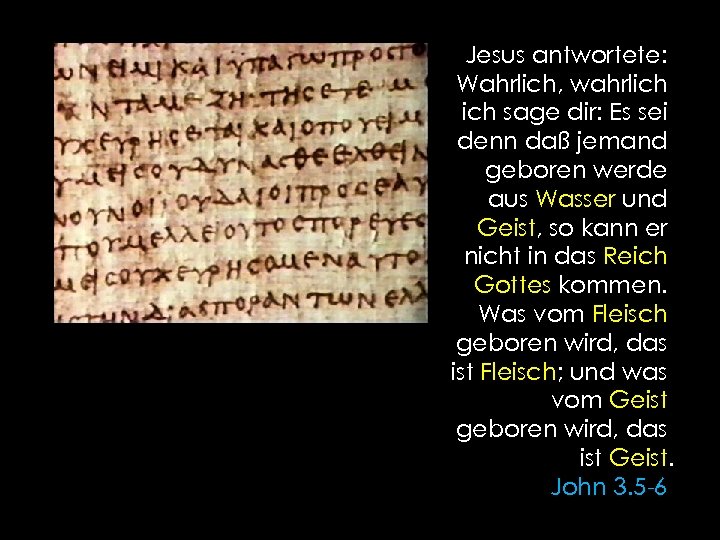 ΥΝΕΙΜΙΚΑΙΥΠΑΓΩΠΡΟϹΤΟ
ΑΝΤΑΜΕΖΗΤΗϹΕΤΕΜ
ΥΧΕΥΡΗϹΕΤΑΙΚΑΙΟΠΟΥΕΙΜ
ΥΜΕΙϹΟΥΔΥΝΑϹΘΕΕΛΘΕΙΝ
ΝΟΥΝΟΙΙΟΥΔΑΙΟΙΠΡΟϹΕΑΥ
ΠΟΥΜΕΛΛΕΙΟΥΤΟϹΠΟΡΕΥΕϹ
ΜΕΙϹΟΥΧΕΥΡΗϹΟΜΕΝΑΥΤΟ
ΑϹΠΟΡΑΝΤΩΝΕΛΛ
Jesus antwortete:
Wahrlich, wahrlich
ich sage dir: Es sei
denn daß jemand
geboren werde
aus Wasser und
Geist, so kann er
nicht in das Reich
Gottes kommen.
Was vom Fleisch
geboren wird, das
ist Fleisch; und was
vom Geist
geboren wird, das
ist Geist.
John 3.5-6